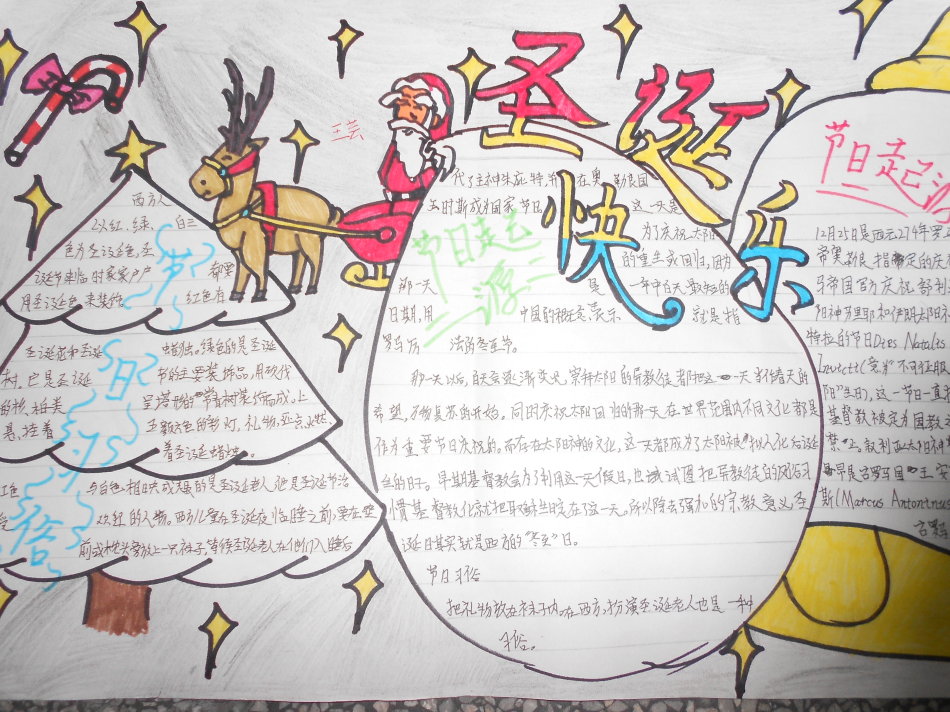 圣诞快乐
王芸
节日习俗
西方人
以红、绿、白三
色为圣诞色,圣
诞节来临时家家户户都要
用圣诞色来装饰。红色有
圣诞花和圣诞蜡烛。绿色的是圣诞
树。它是圣诞节的主要装饰品,用砍伐
的杉、柏类呈塔形的常青树装饰而成。上
悬挂着五颜六色的彩灯、礼物
着圣诞蜡烛。
红色与白色相映成趣的是圣诞老人,他是圣诞节活
欢红的人物。西方儿童在圣诞夜临睡之前,要在壁
前或枕头旁放上一只袜子,等候圣诞老人在他们入睡后
节日起源
代了主神朱庇特,并在奥勒良国
王时期成为国家节日
这一天是
为了庆祝太阳
的重生或回归,因为
那一天是一年中白天最短的
日期,用中国的概念表示就是指
罗马历法的冬至节。
那一天以后,白天会逐渐变长,崇拜太阳的异教徒都把这一天当作春天的
希望,万物复苏的开始。同时庆祝太阳回归的那一天在世界范围内不同文化都是
作为重要节日庆祝的。而存在太阳神的文化,这一天都成为了太阳神拟人化后诞
生的日子。早期基督教会为了利用这一天假日,也试图把异教徒的风俗习
惯基督教化就把耶稣生日定在这一天。所以除去强加的宗教意义,圣
诞日其实就是西方的“冬至”日。
节日习俗
把礼物放在袜子内,在西方,扮演圣诞老人也是一种
习俗。
节日起源
12月25日是西元274年罗
希望,教是指特定的庆
马帝国官方庆祝叙利
阳神
特拉的节日Dies Natalis
Invicti(意为“不可征服
阳”生日),这一节日一直
基督教被定为国教
禁止。叙利亚太阳神
最早是古罗马国王
斯(Marcus Antontnu